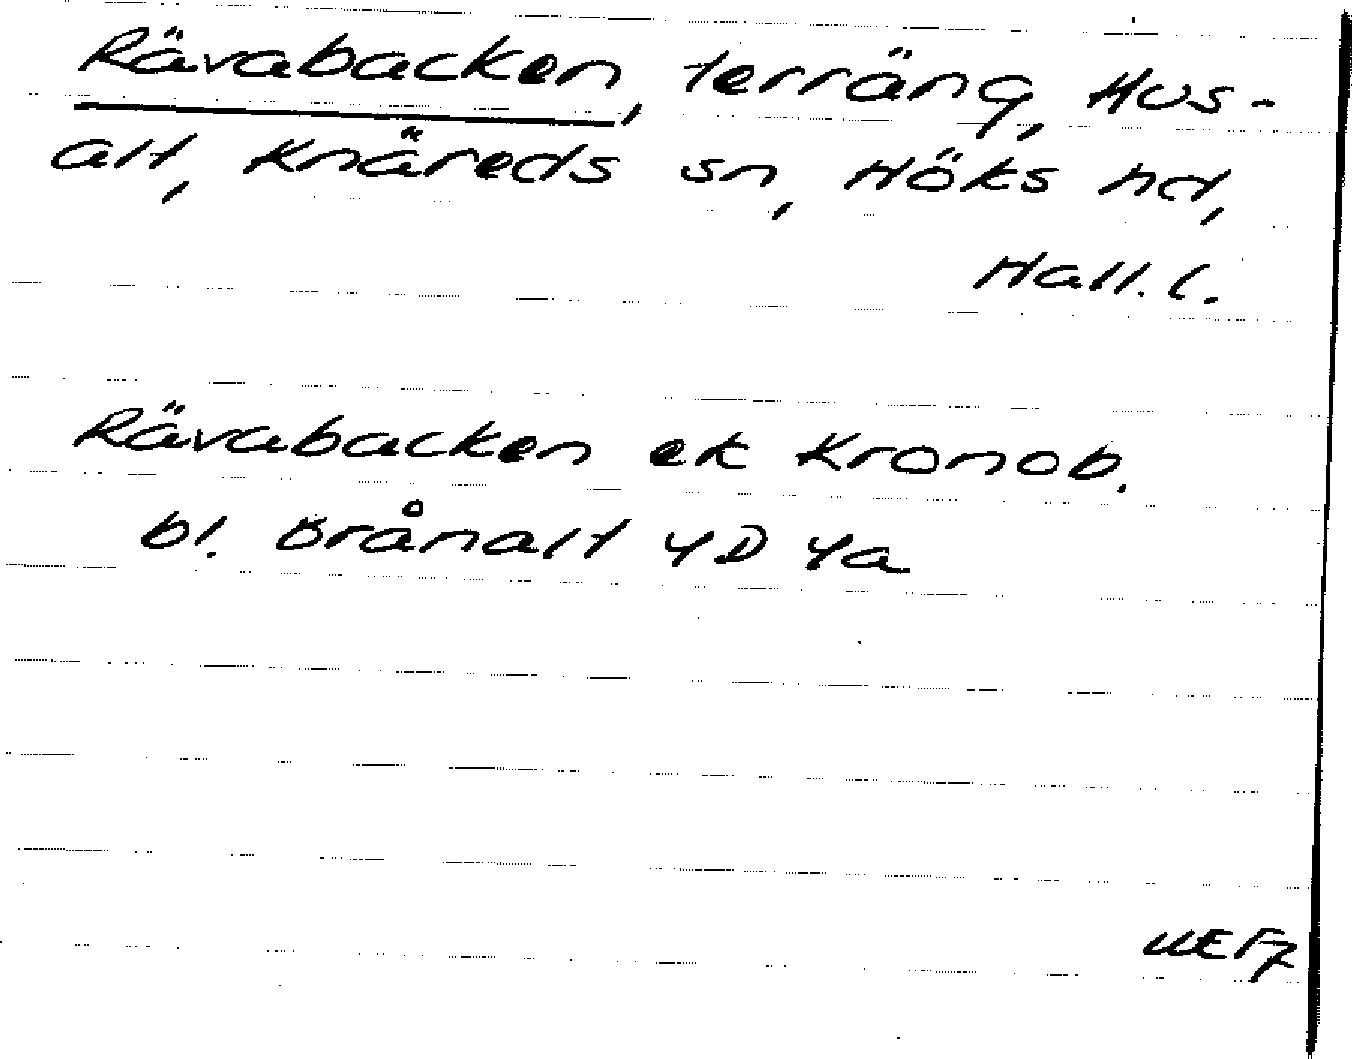 Rävabacken, terräng, Hus-
alt, Knäreds sn, Höks hd,
Hall. l.
Rävabacken ek Kronob.
bl. Brånalt 4D 4a